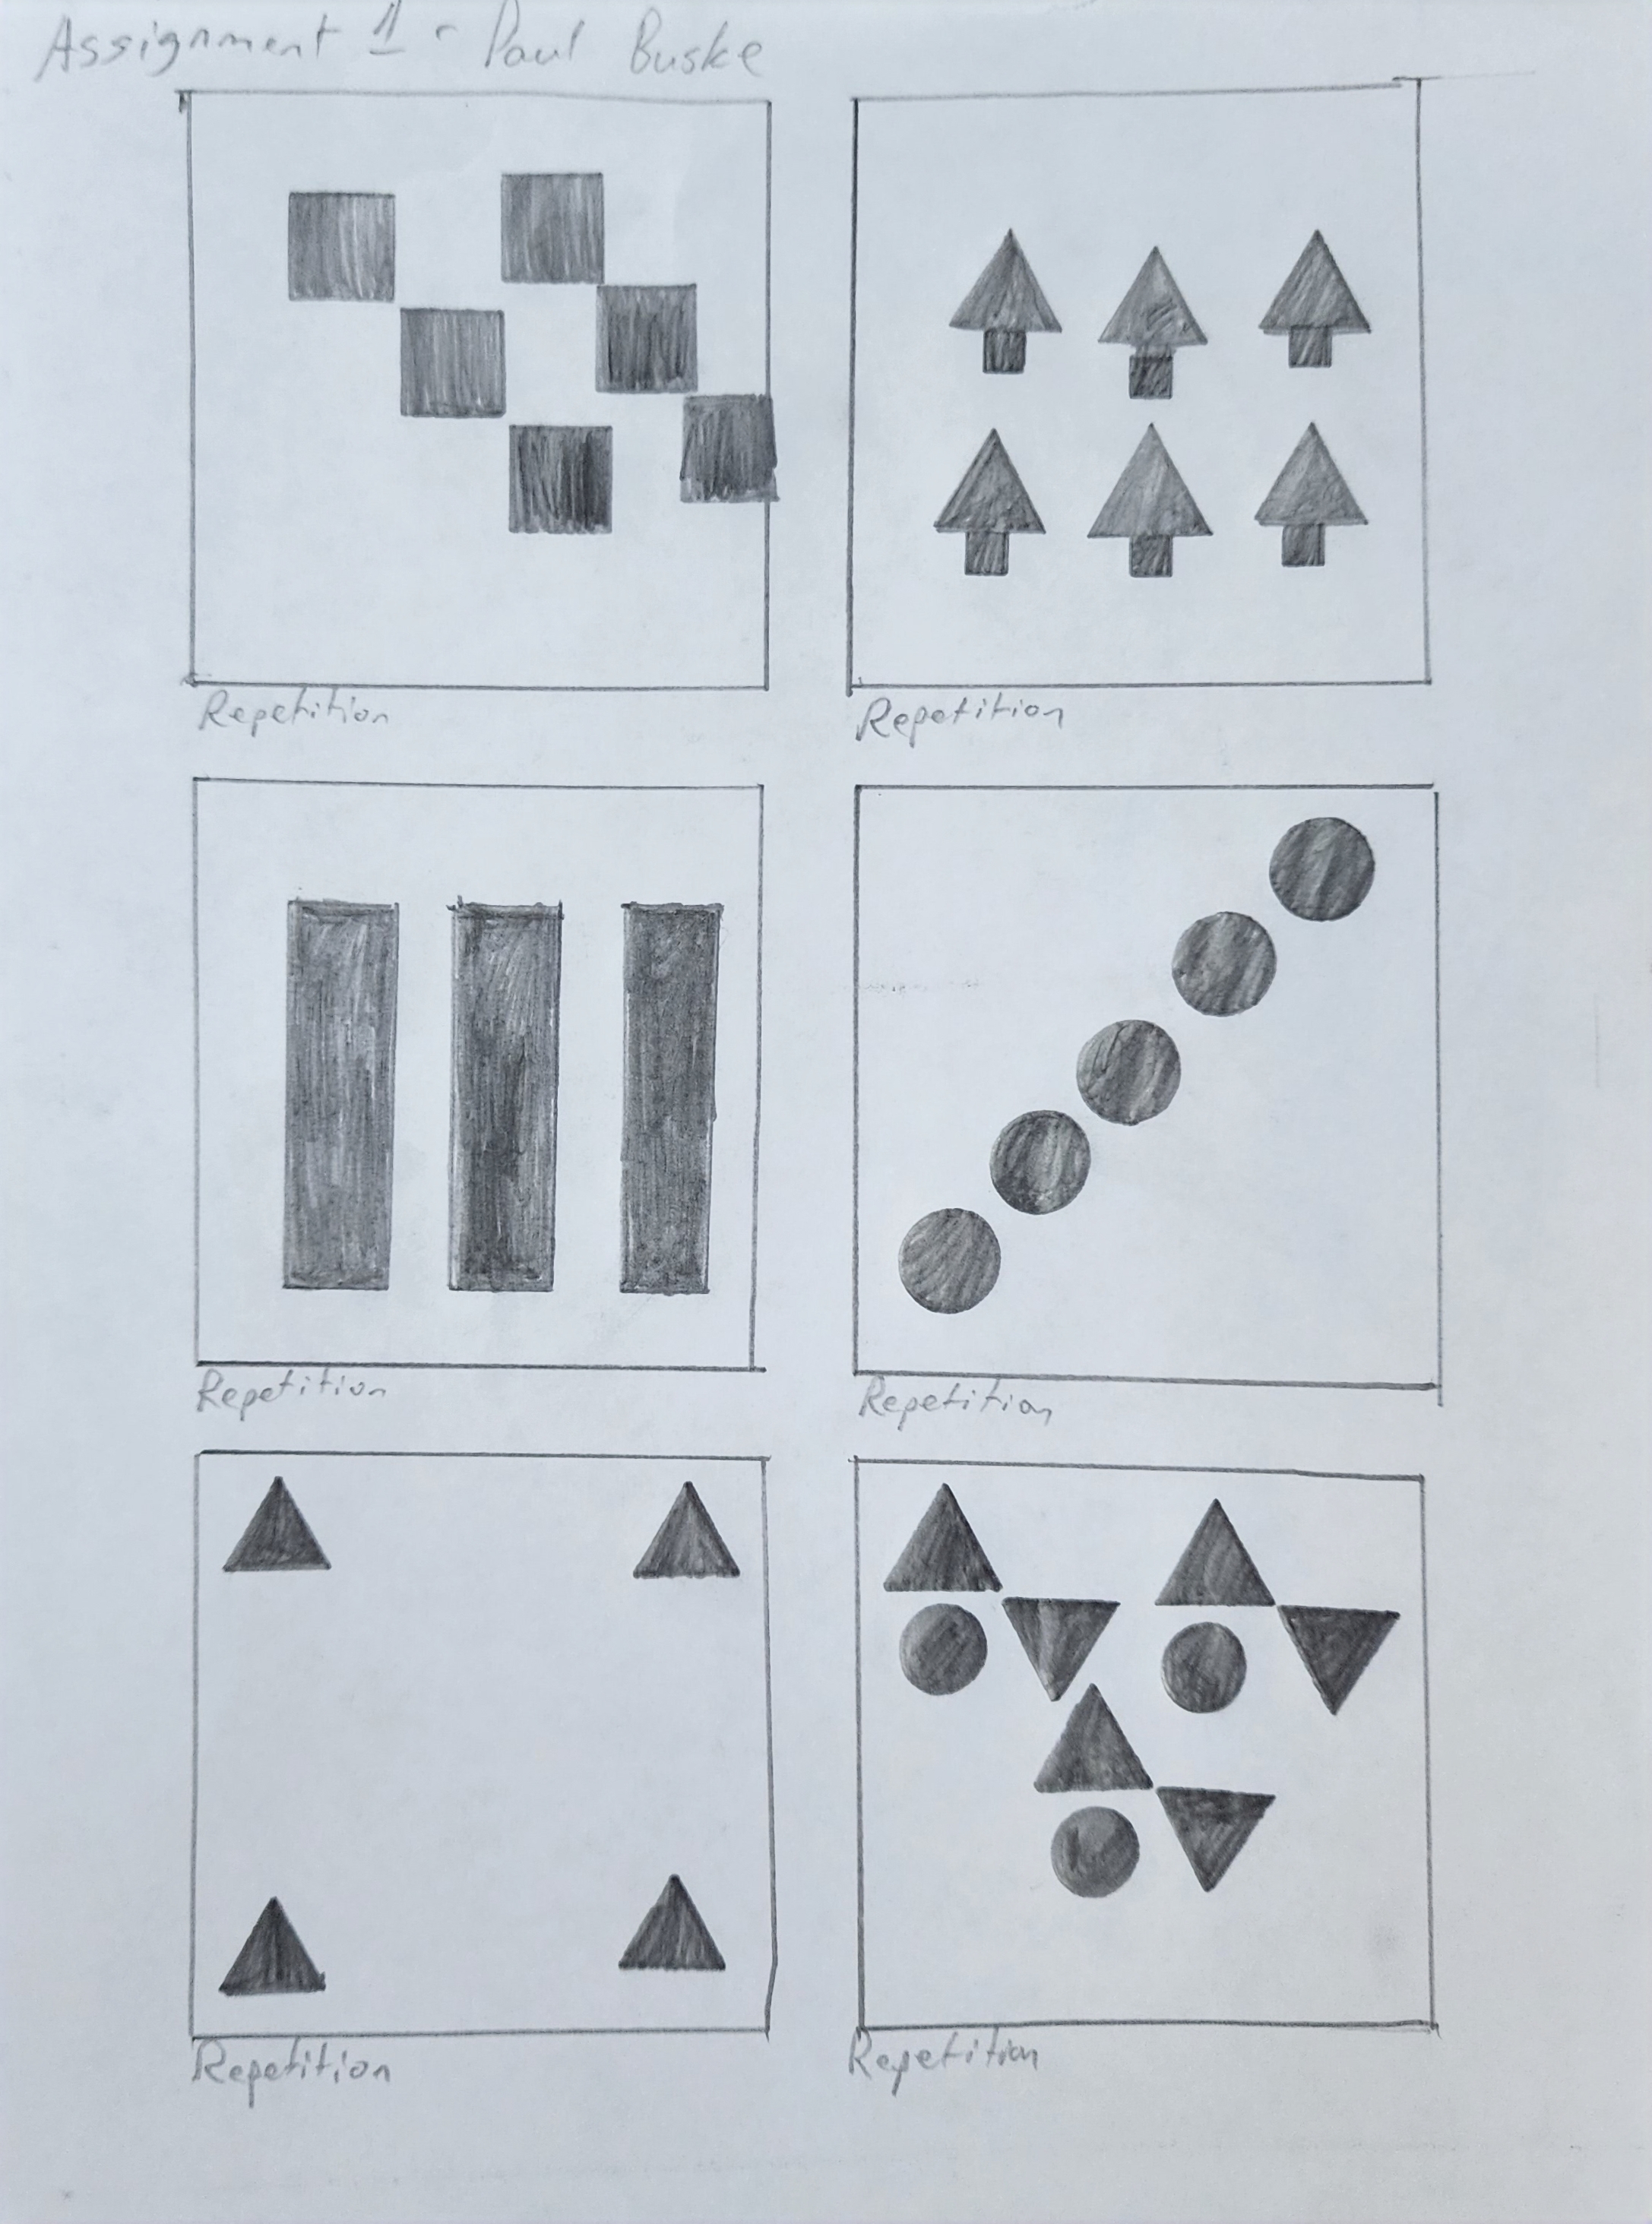 Assignment 1 - Paul Buske
Repetition
Repetition
Repetition
Repetition
Repetition
Repetition